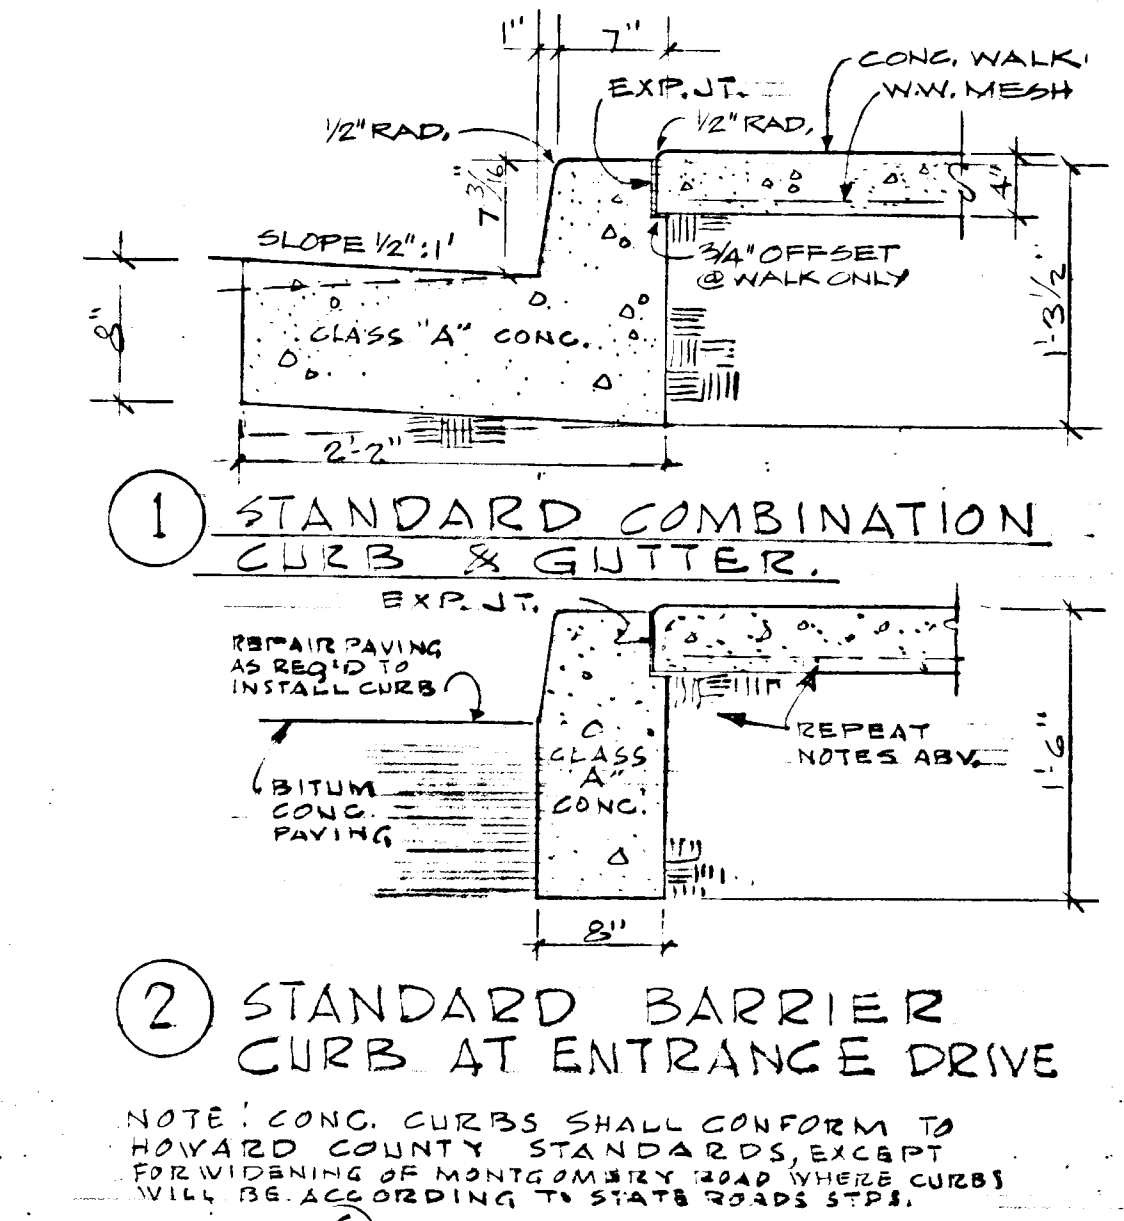 1" 7"
CONC. WALK.
EXP. JT.
W.W. MESH
1/2" RAD.
1/2" RAD.
7 3/16"
4"
SLOPE 1/2" : 1'
3/4" OFFSET
@ WALK ONLY
8"
CLASS "A" CONC.
1'-3 1/2
2'-2"
1 STANDARD COMBINATION
CURB & GUTTER.
EXP. JT.
REPAIR PAVING
AS REQ'D TO
INSTALL CURB
REPEAT
NOTES ABV.
1'-6"
CLASS
"A"
CONC.
BITUM
CONC.
PAVING
8"
2 STANDARD BARRIER
CURB AT ENTRANCE DRIVE
NOTE: CONC. CURBS SHALL CONFORM TO
HOWARD COUNTY STANDARDS, EXCEPT
FOR WIDENING OF MONTGOMERY ROAD WHERE CURBS
WILL BE ACCORDING TO STATE ROADS STDS.